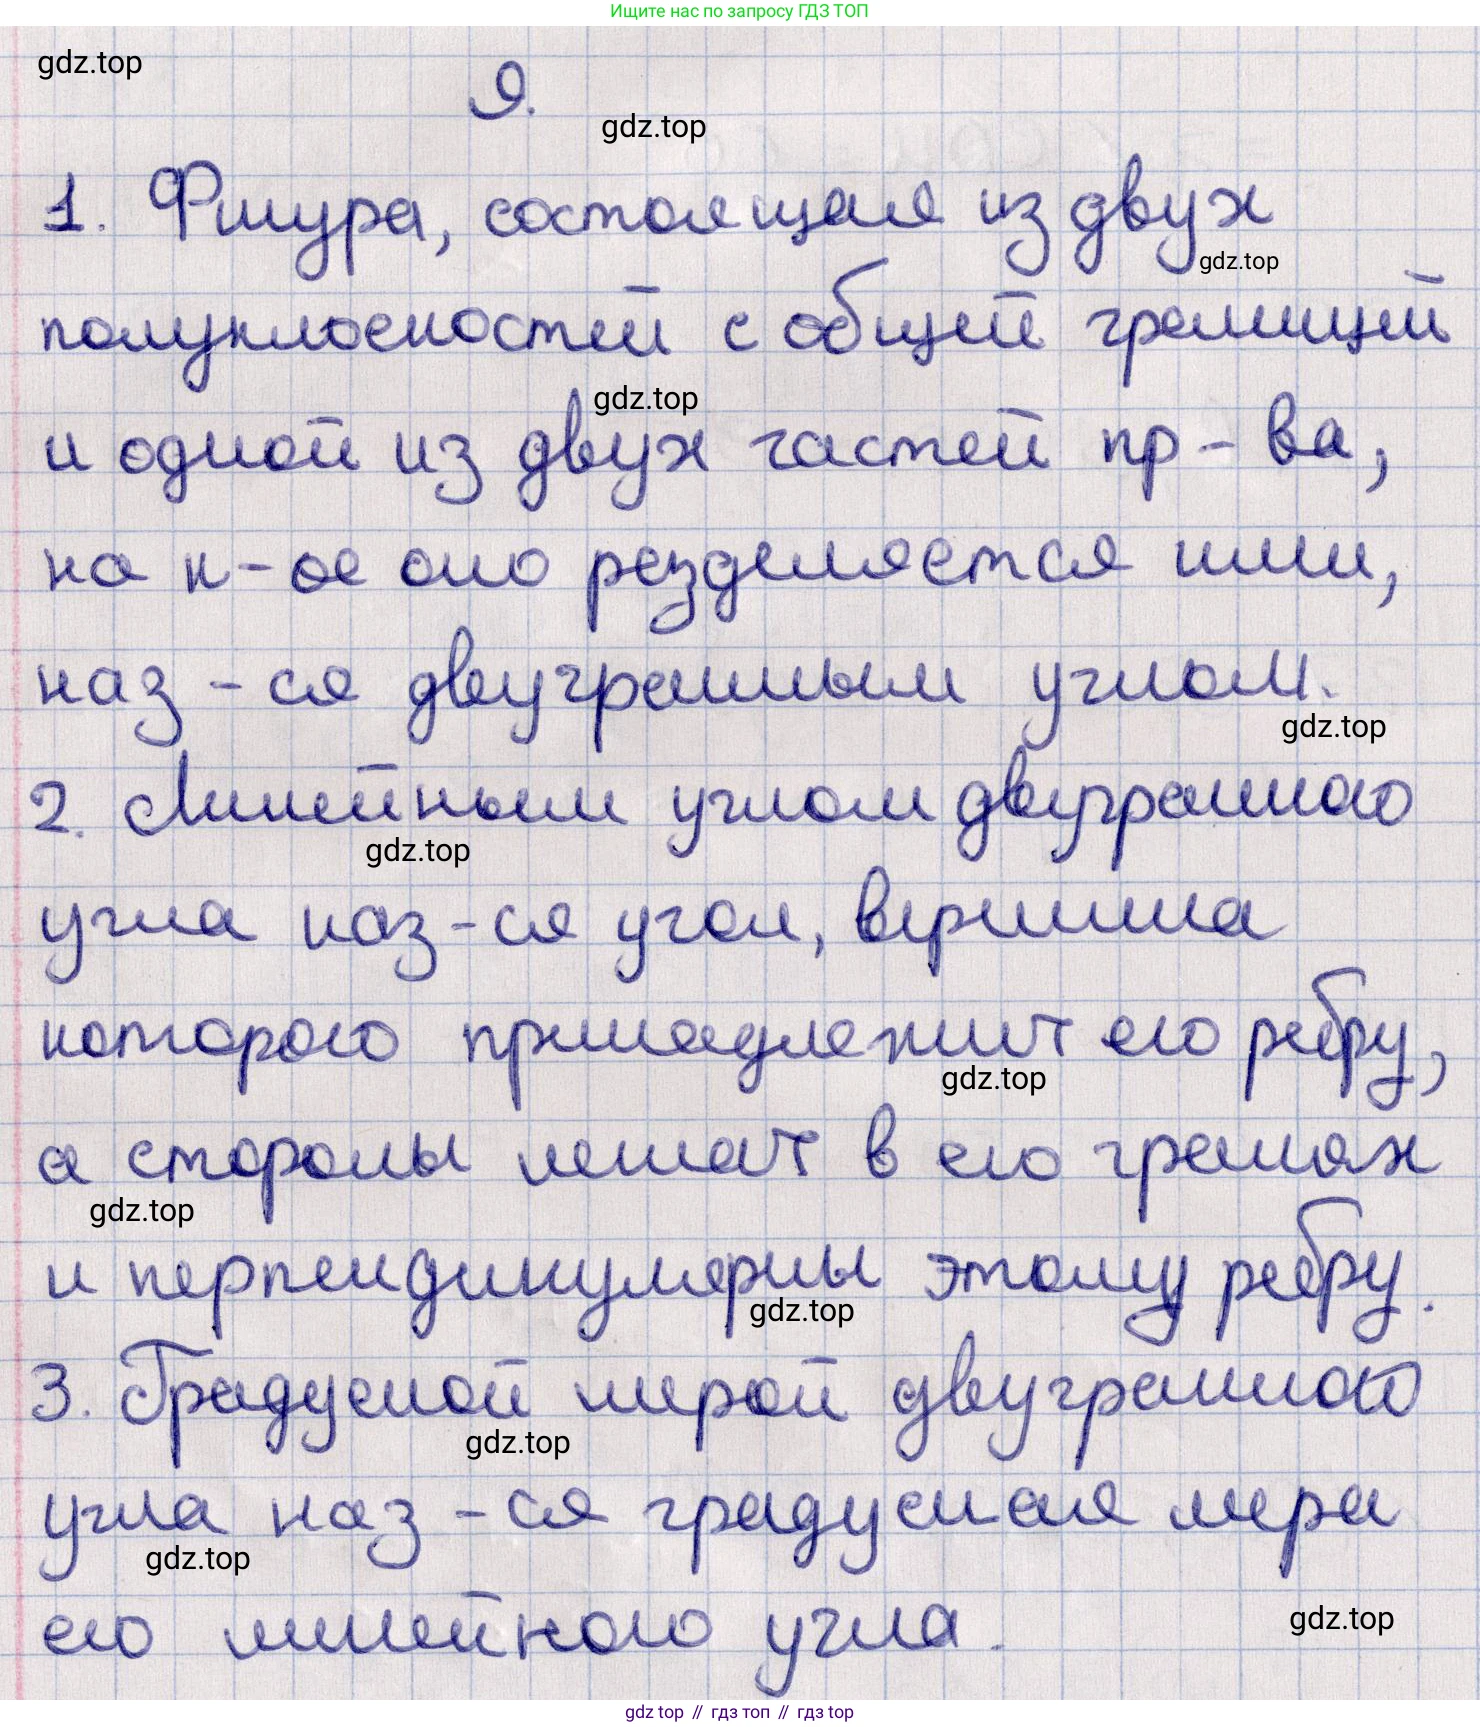 Ищите нас по запросу ГДЗ ТОП
gdz.top
9.
gdz.top
1. Фигура, состоящая из двух
gdz.top
полуплоскостей с общей границей
gdz.top
и одной из двух частей пр-ва,
на к-ое оно разделяется ими,
наз-ся двугранным углом.
gdz.top
2. Линейным углом двугранного
gdz.top
угла наз-ся угол, вершина
которого принадлежит его ребру,
gdz.top
а стороны лежат в его гранях
gdz.top
и перпендикулярны этому ребру.
gdz.top
3. Градусной мерой двугранного
gdz.top
угла наз-ся градусная мера
gdz.top
его линейного угла.
gdz.top
gdz top // гдз топ // гдз top